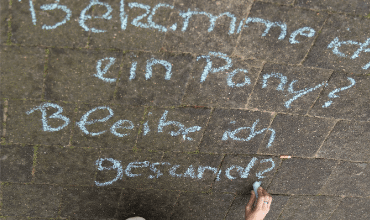 Bekomme ich
ein Pony?
Bleibe ich
gesund?